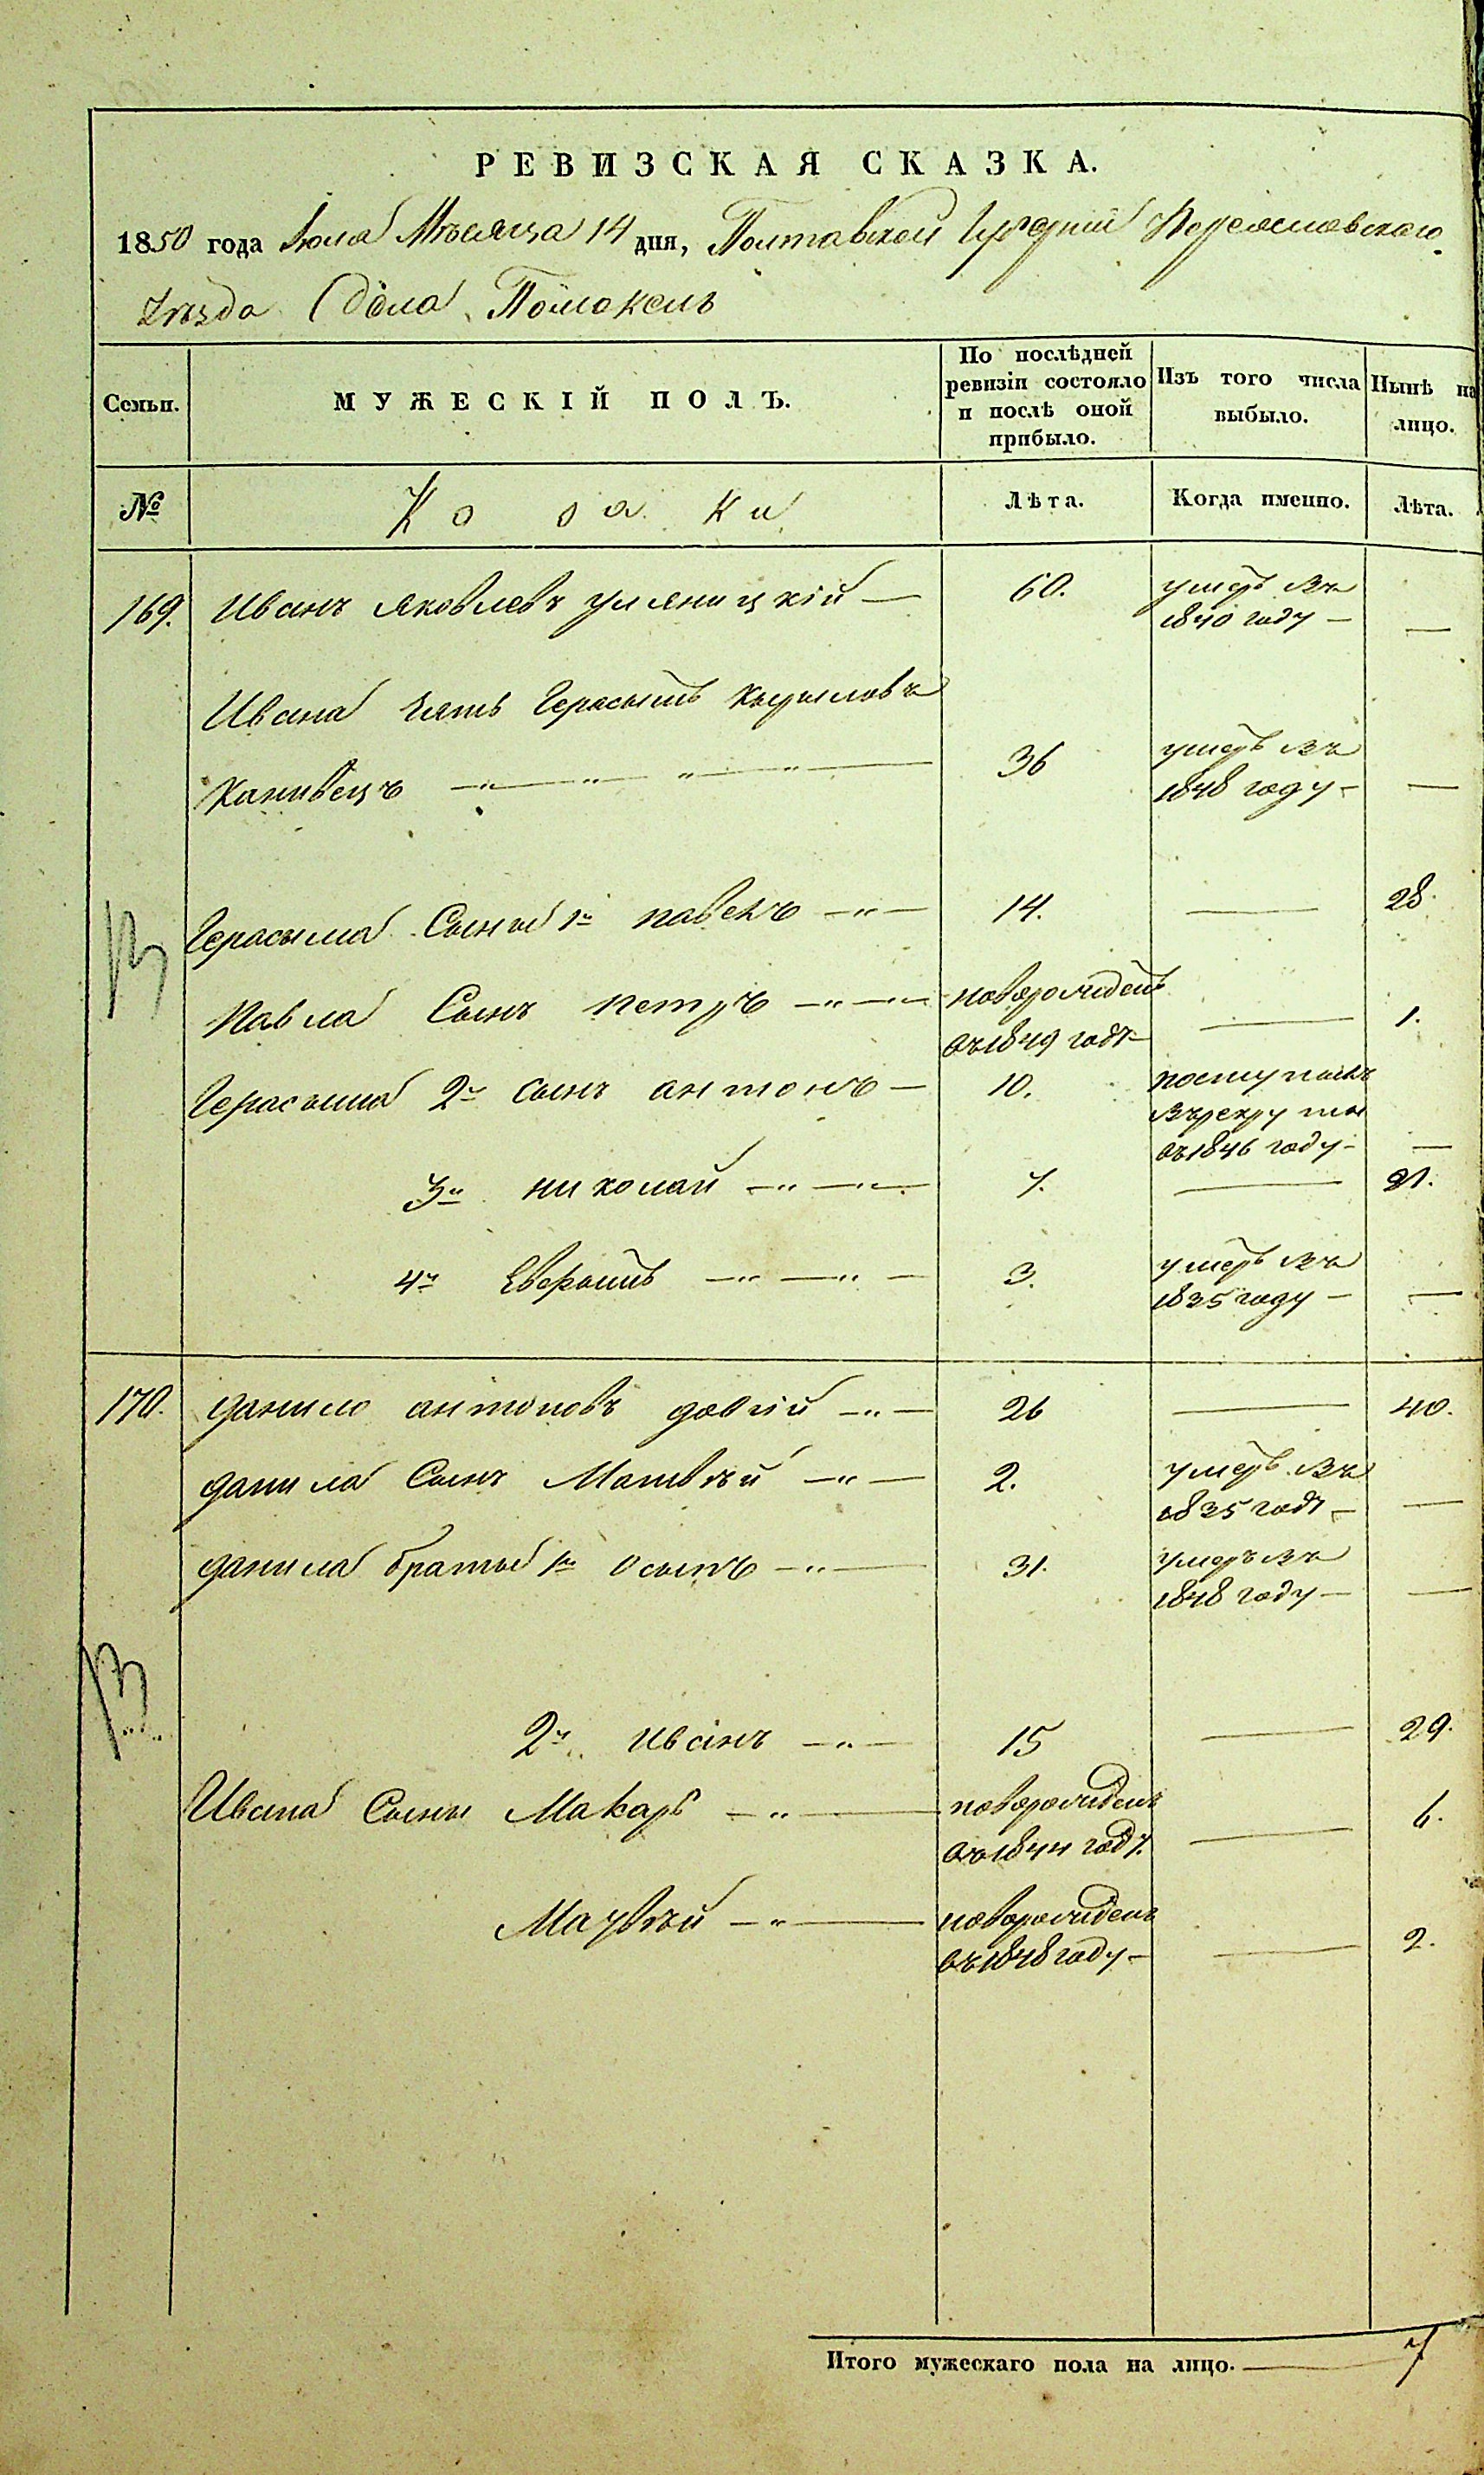 РЕВИЗСКАЯ СКАЗКА.
1850 года Іюля Мѣсяца 14 дня, Полтавской Губерніи Переясловскаго
Уѣзда Села Помоклъ
Семьи.
МУЖЕСКІЙ ПОЛЪ.
По послѣдней ревизіи состояло и послѣ оной прибыло.
Изъ того числа выбыло.
Нынѣ на лицо.
№
Козаки
Лѣта.
Когда именно.
Лѣта.
169. Иванъ Яковлевъ уляницкій — 60. умеръ въ
1840 году — —
Ивана зять Герасымъ Кырыловъ
Канивецъ 36 умеръ въ
1848 году — —
Герасыма Сыны 1й павелъ 14. — 28.
Павла Сынъ петръ новорожденъ — 1.
въ 1849 году
Герасыма 2й сынъ антонъ 10. поступилъ
въ рекруты
въ 1846 году — —
3й николай 7. — 21.
4й Евфымъ 3. умеръ въ
1835 году — —
170. данило антоновъ довгій 26 — 40.
данила Сынъ Матвѣй 2. умеръ въ
1835 году — —
данила братья 1й осыпъ 31. умеръ въ
1848 году — —
2й иванъ 15 — 29.
Ивана Сыны Макаръ новорожденъ — 6.
въ 1844 году
Матвѣй новорожденъ — 2.
въ 1848 году —
Итого мужескаго пола на лицо. — 7